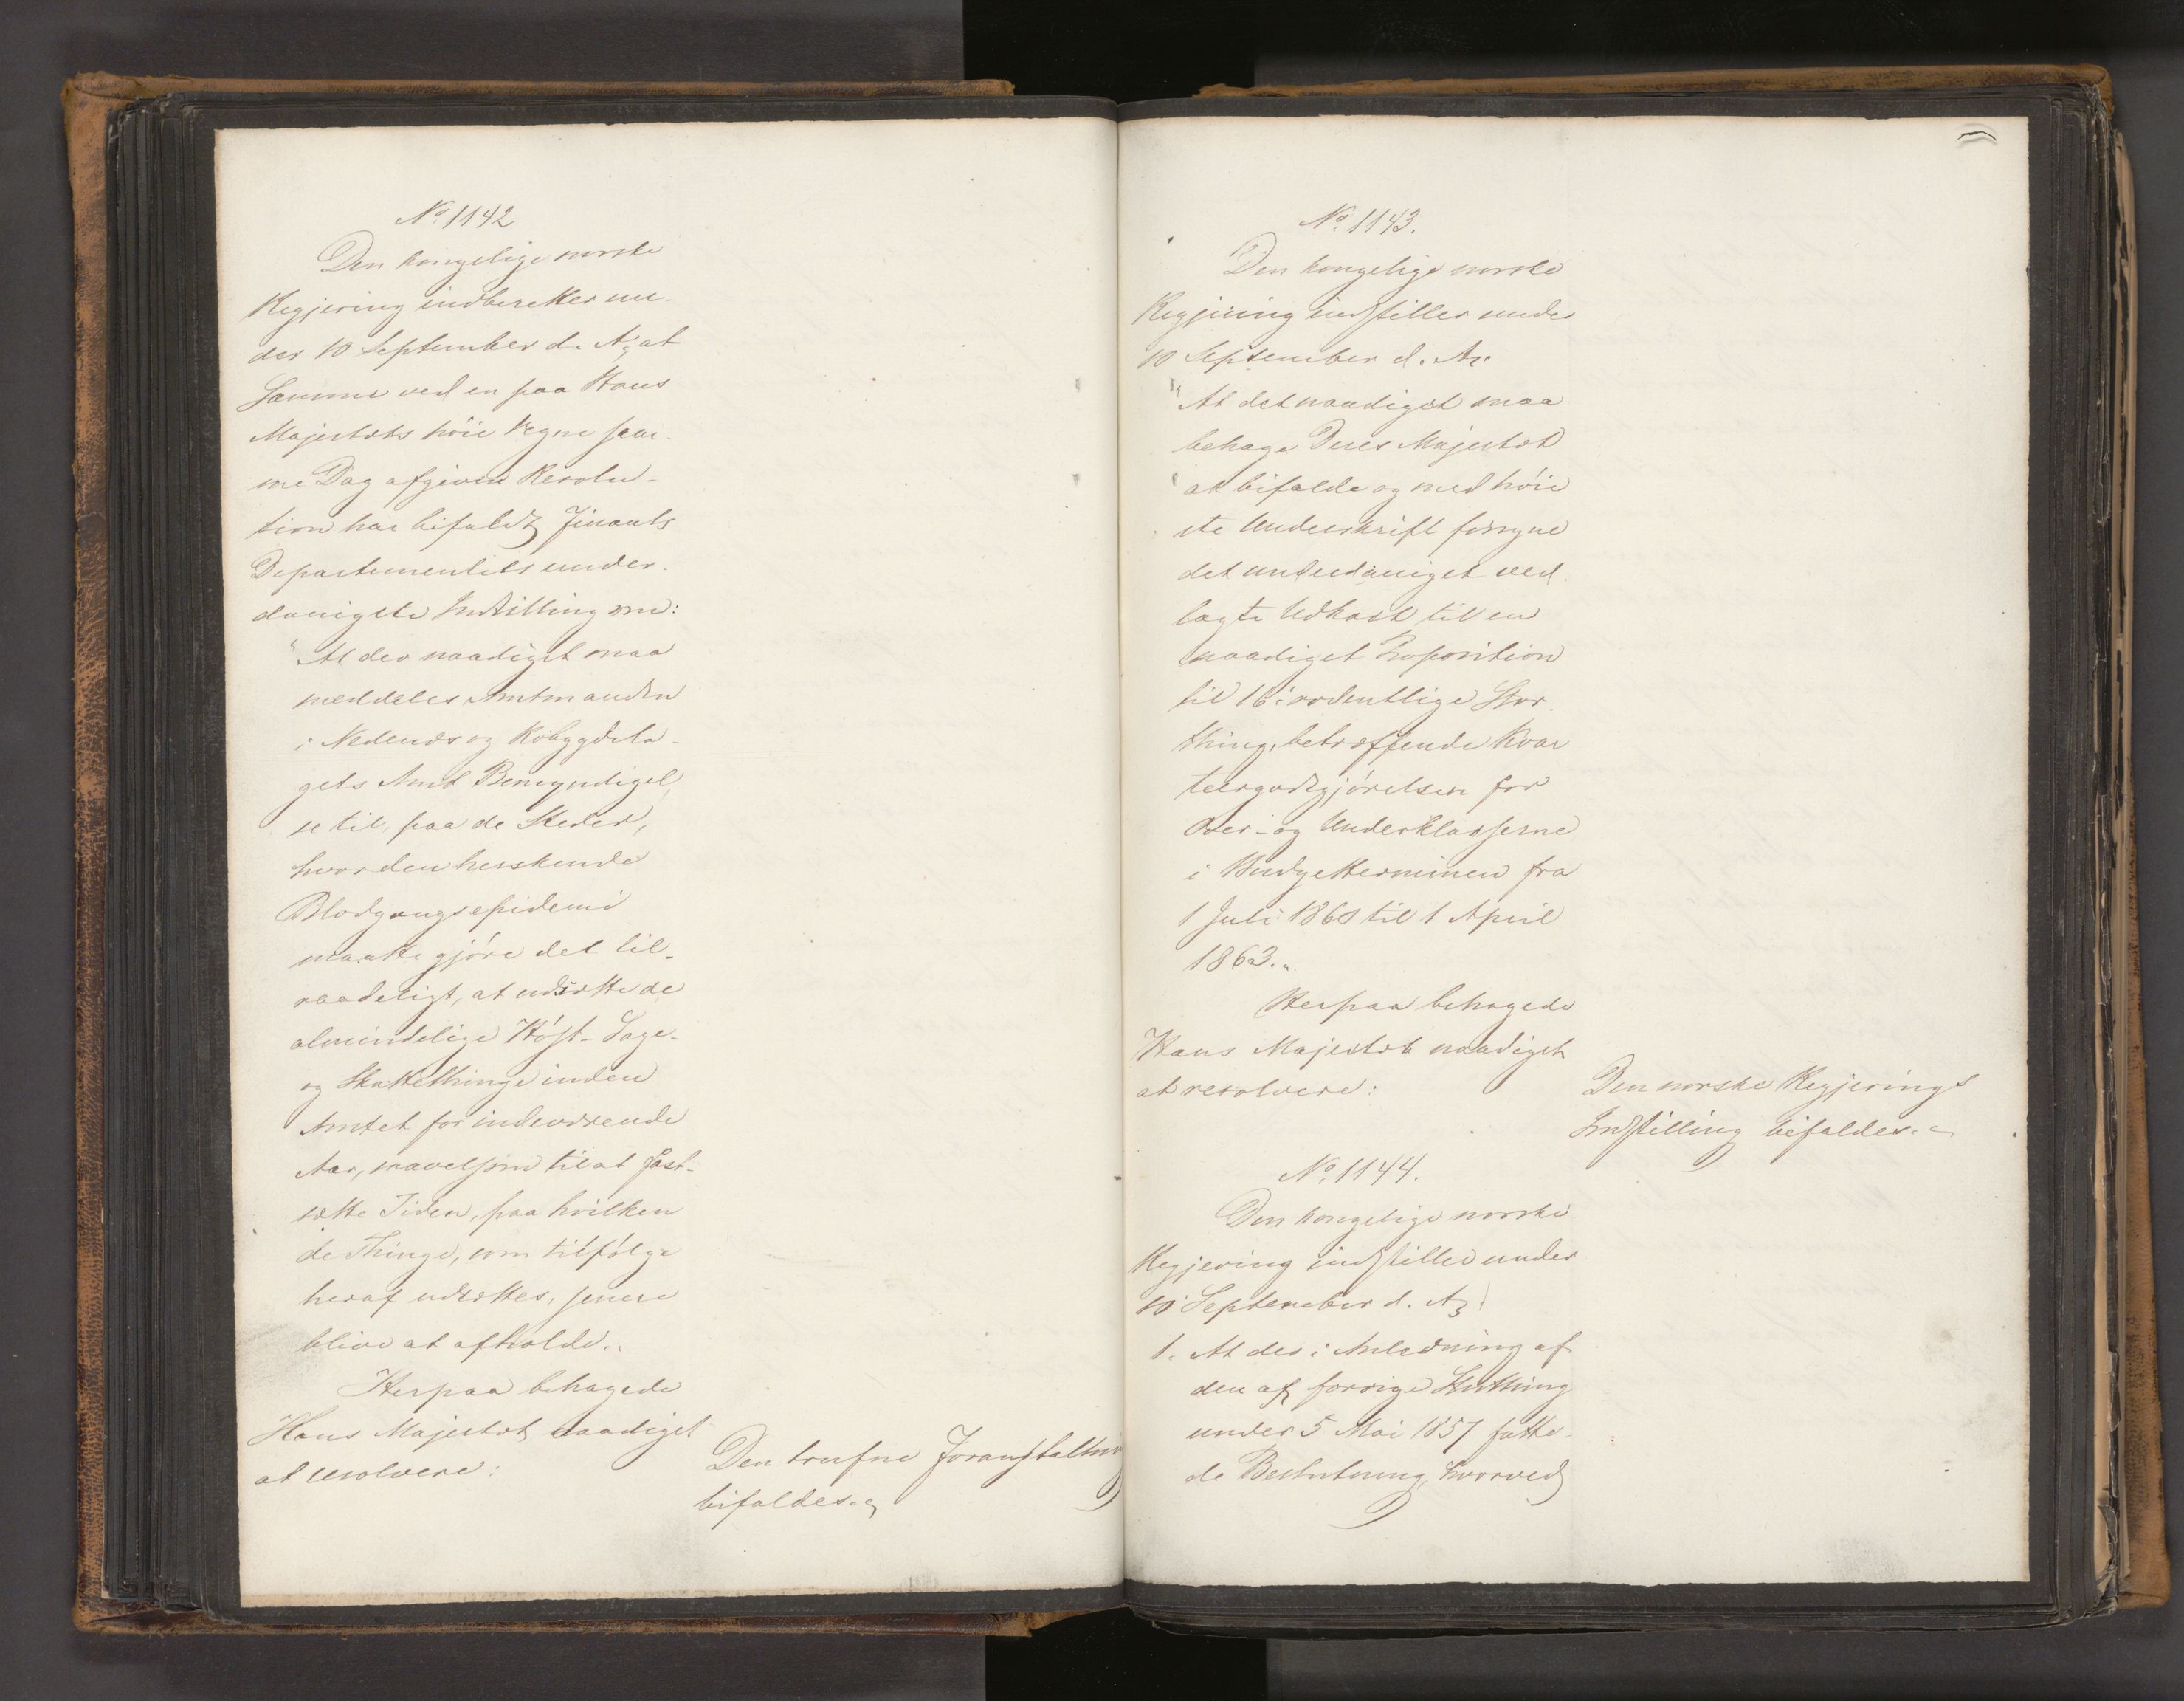 No. 1142
Den kongelige norske
Regjering indberetter un-
der 10 September d. A. at
Samme ved en paa Hans
Majestæts høie Vegne sam-
me Dag afgiven Resolu-
tion har bifaldt Finants
Departementets under-
danigste Indstilling om:
"At der naadigst maa
meddeles Amtmanden
i Nedenæs og Robygdela-
gets Amt Bemyndigel-
se til, paa de Steder,
hvor den herskende
Blodgangsepidemi
maatte gjøre det til-
raadeligt, at udsætte de
almindelige Høst- Sage-
og Skattethinge inden
Amtet for indeværende
Aar, saavelsom til at fast-
sætte Tiden, paa hvilken
de Thinge, som tilfølge
heraf udsættes, senere
blive at afholde."
Herpaa behagede
Hans Majestæt naadigst
at resolvere:
Den trufne Foranstaltning
bifaldes.
No. 1143.
Den kongelige norske
Regjering indstiller under
10 September d. A.
"At det naadigst maa
behage Deres Majestæt
at bifalde og med høie-
ste Underskrift forsyne
det underdanigst ved-
lagte Udkast til en
naadigst Proposition
til 16de ordentlige Stor-
thing, betræffende Kvar-
teergodtgjørelsen for
Over- og Underklasserne
i Budgetterminen fra
1 Juli 1860 til 1 April
1863."
Herpaa behagede
Hans Majestæt naadigst
at resolvere:
Den norske Regjerings
Indstilling bifaldes.
No. 1144.
Den kongelige norske
Regjering indstiller under
10 September d. A.
1. At der i Anledning af
den af forrige Storthing
under 5 Mai 1857 fatte-
de Beslutning, hvorved